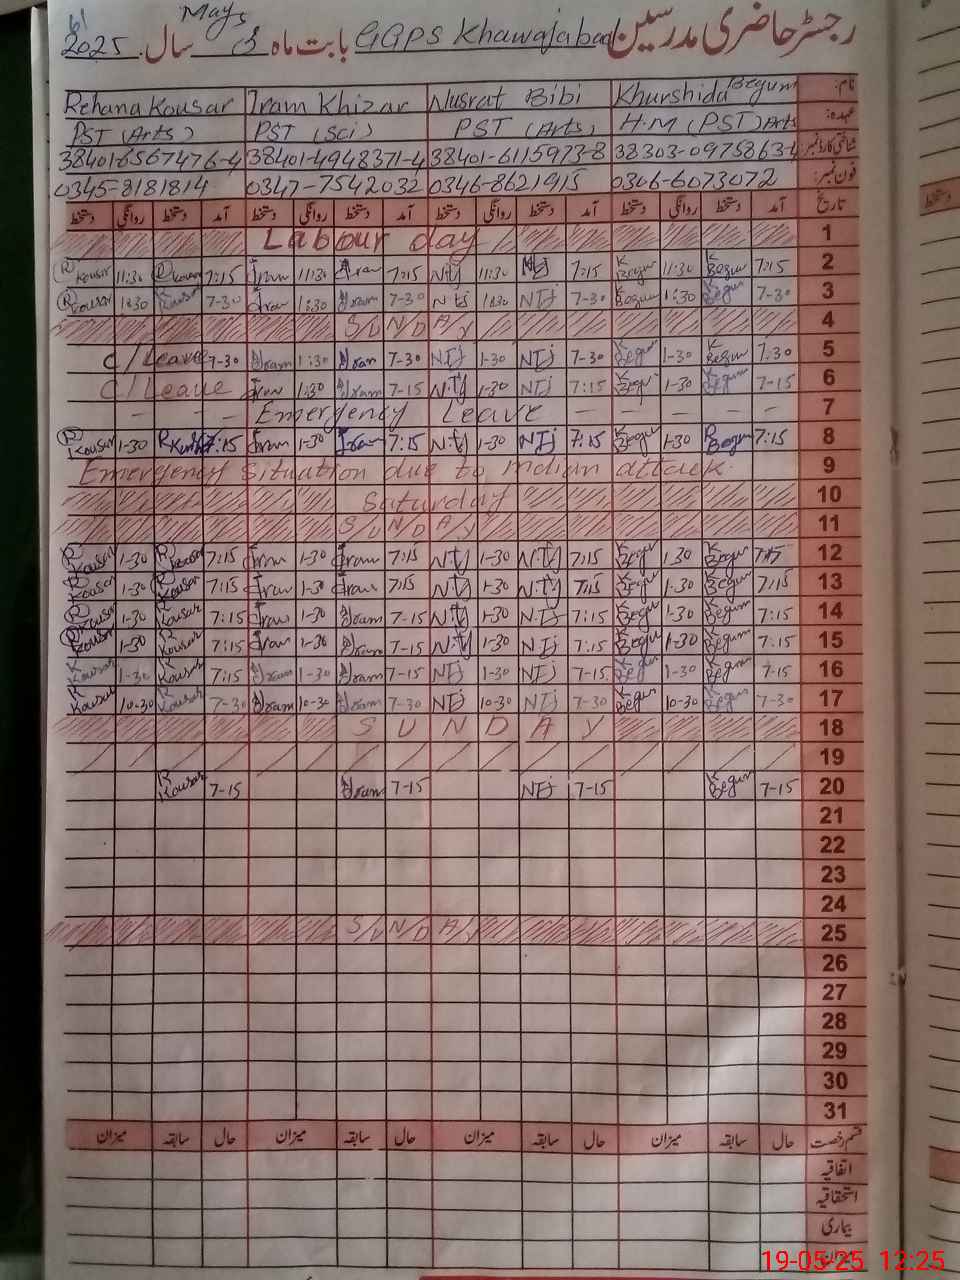 61
رجسٹر حاضری مدرسین GGPS Khawajabad بابت ماہ May 5 سال 2025
نام: Khurshida Begum Nusrat Bibi Iram Khizar Rehana Kousar
عہدہ: H.M (PST) Arts PST (Arts) PST (Sci) PST (Arts)
شناختی کارڈ نمبر: 38303-0975863-4 38401-6115973-8 38401-4948371-4 38401-6567476-4
فون نمبر: 0306-6073072 0346-8621915 0347-7542032 0345-8181814
تاریخ آمد دستخط روانگی دستخط آمد دستخط روانگی دستخط آمد دستخط روانگی دستخط آمد دستخط روانگی دستخط
Labour day 1
R Kousar 11:30 R Kousar 7:15 Iram 11:30 Iram 7:15 NTj 11:30 NTj 7:15 K Begum 11:30 K Begum 7:15 2
R Kousar 1:30 R Kousar 7-30 Iram 1:30 Iram 7-30 NTj 1:30 NTj 7-30 K Begum 1:30 K Begum 7-30 3
SUNDAY 4
C/Leave 7-30 Iram 1:30 Iram 7-30 NTj 1-30 NTj 7-30 K Begum 1-30 K Begum 7:30 5
C/Leave Iram 1:30 Iram 7-15 NTj 1-30 NTj 7:15 K Begum 1-30 K Begum 7-15 6
- - - Emergency Leave - - - - 7
R Kousar 1-30 R Kousar 7:15 Iram 1-30 Iram 7:15 NTj 1-30 NTj 7:15 K Begum 1-30 Begum 7:15 8
Emergency situation due to indian attack. 9
Saturday 10
SUNDAY 11
R Kousar 1-30 R Kousar 7:15 Iram 1-30 Iram 7:15 NTj 1-30 NTj 7:15 K Begum 1.30 K Begum 7:15 12
R Kousar 1-30 R Kousar 7:15 Iram 1-30 Iram 7:15 NTj 1-30 NTj 7:15 K Begum 1-30 K Begum 7:15 13
R Kousar 1-30 R Kousar 7:15 Iram 1-30 Iram 7-15 NTj 1-30 NTj 7:15 K Begum 1-30 K Begum 7:15 14
R Kousar 1-30 R Kousar 7:15 Iram 1-30 Iram 7-15 NTj 1-30 NTj 7:15 K Begum 1-30 K Begum 7:15 15
R Kousar 1-30 R Kousar 7:15 Iram 1-30 Iram 7-15 NTj 1-30 NTj 7-15 K Begum 1-30 K Begum 7-15 16
R Kousar 10-30 R Kousar 7-30 Iram 10-30 Iram 7-30 NTj 10-30 NTj 7-30 K Begum 10-30 K Begum 7-30 17
SUNDAY 18
19
R Kousar 7-15 Iram 7-15 NTj 7-15 K Begum 7-15 20
21
22
23
24
SUNDAY 25
26
27
28
29
30
31
قسم رخصت حال سابقہ میزان حال سابقہ میزان حال سابقہ میزان حال سابقہ میزان
اتفاقیہ
استحقاقیہ
بیماری
میزان
19-05-25 12:25
دستخط